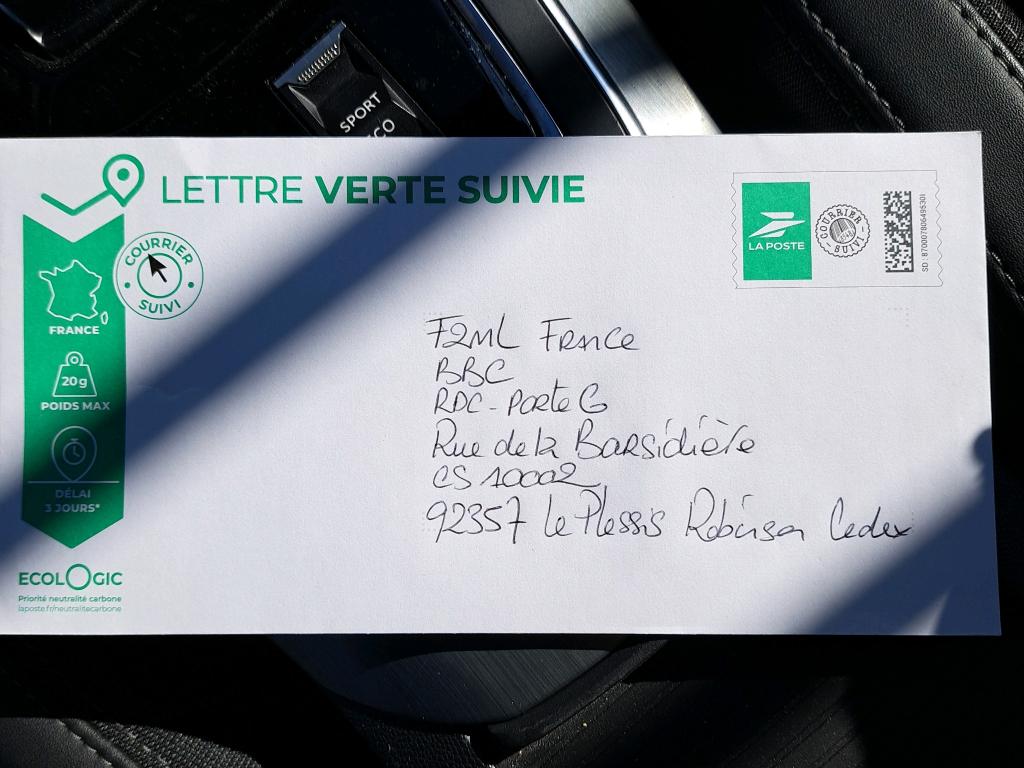 SPORT
ECO
LETTRE VERTE SUIVIE
COURRIER
SUIVI
FRANCE
20g
POIDS MAX
DÉLAI
3 JOURS*
ECOLOGIC
Priorité neutralité carbone
laposte.fr/neutralitecarbone
LA POSTE
COURRIER
SUIVI
F2ML France
BBC
RDC - Porte G
Rue de la Barsidière
CS 10002
92357 Le Plessis Robinson Cedex